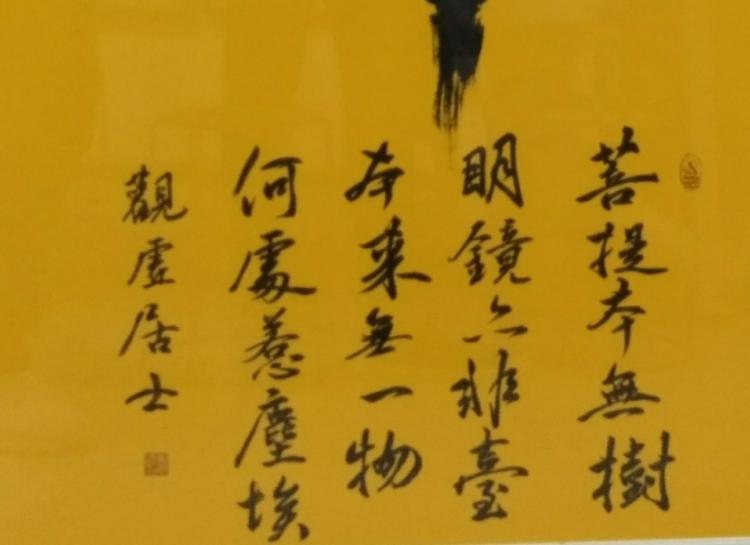 菩提本無樹
明鏡亦非臺
本來無一物
何處惹塵埃
觀虛居士